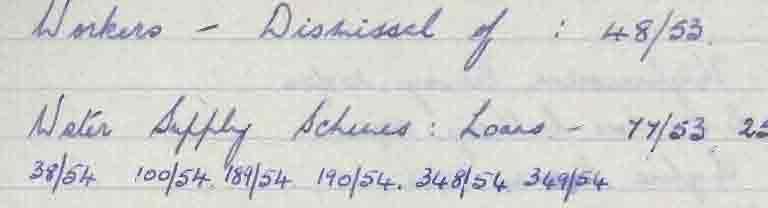 Workers - Dismissal of : 48/53.
Water Supply Schemes : Loans - 77/53 25
38/54 100/54. 189/54 190/54. 348/54 349/54